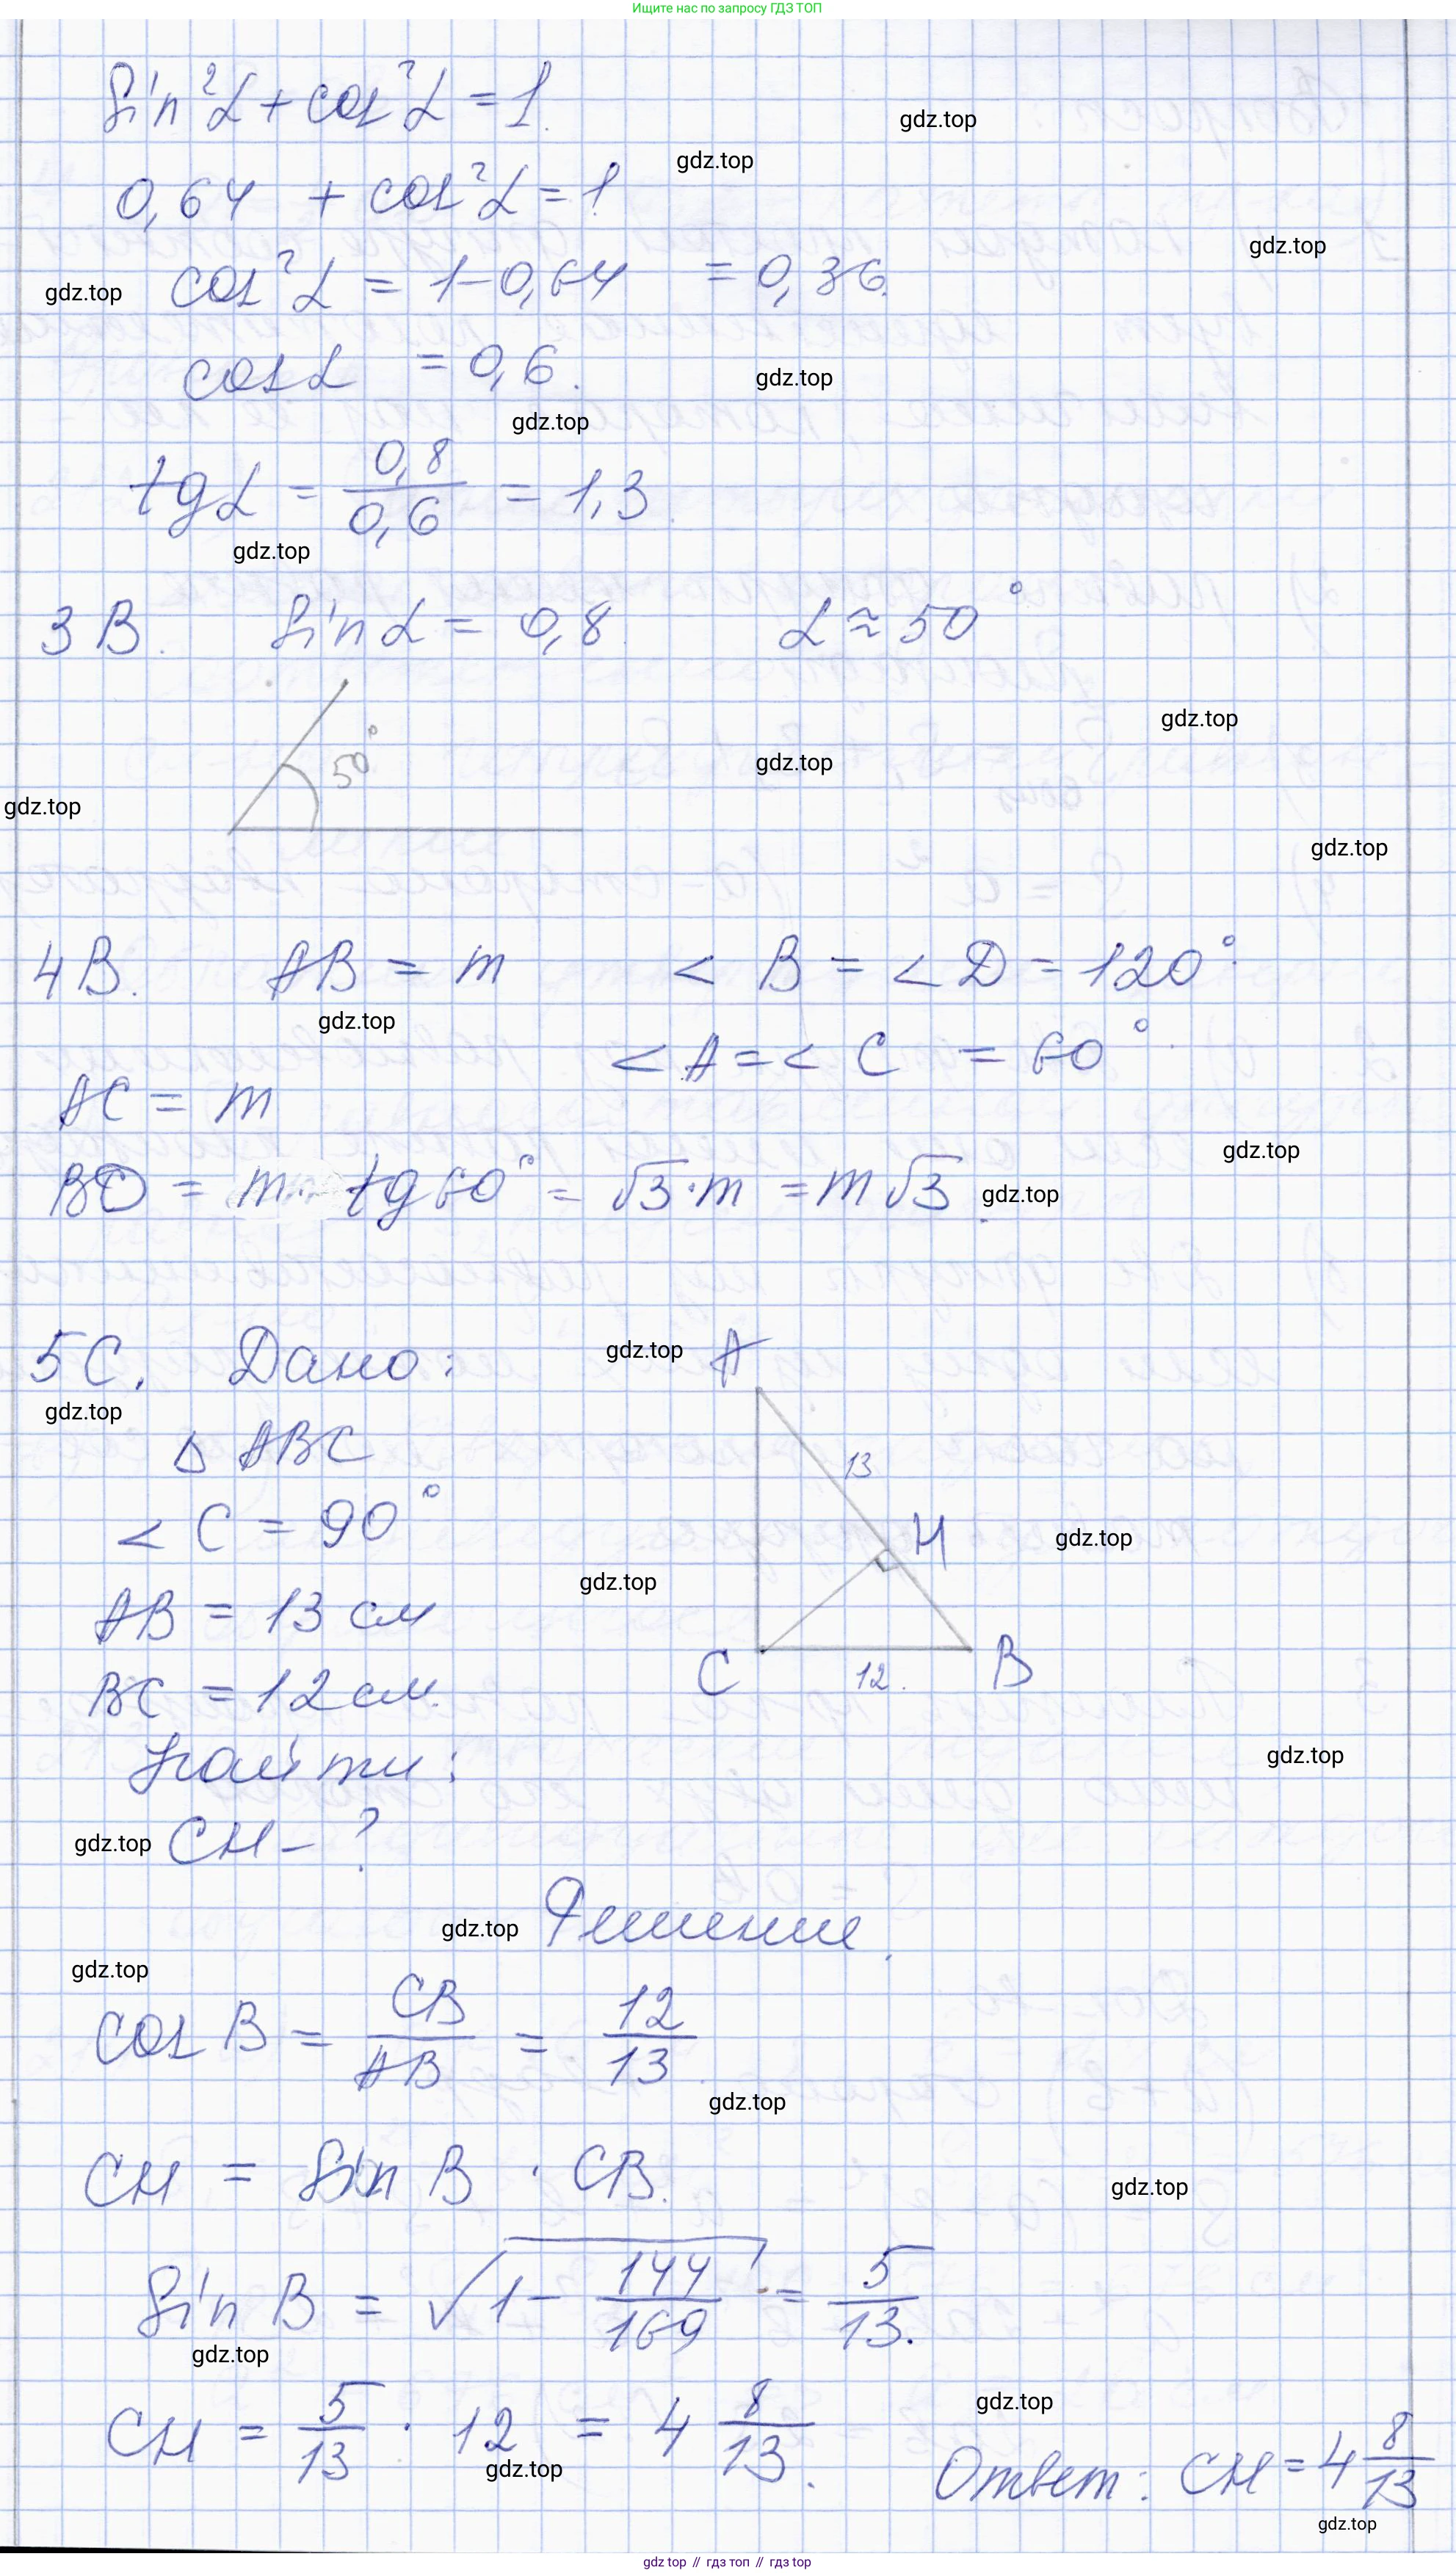 Ищите нас по запросу ГДЗ ТОП
sin²α + cos²α = 1.
gdz.top
gdz.top
0,64 + cos²α = 1
gdz.top
cos²α = 1 - 0,64 = 0,36.
gdz.top
cosα = 0,6.
gdz.top
gdz.top
tgα = 0,8/0,6 = 1,3.
gdz.top
3 В. sinα = 0,8. α ≈ 50°
gdz.top
50°
gdz.top
gdz.top
gdz.top
4 В. AB = m < B = < D = 120°.
gdz.top
< A = < C = 60°.
AC = m
gdz.top
BD = m · tg60° = √3 · m = m√3.
gdz.top
5 С. Дано:
gdz.top
A
gdz.top
Δ ABC
13
< C = 90°
H
gdz.top
gdz.top
AB = 13 см
C
12.
B
BC = 12 см.
Найти:
gdz.top
gdz.top
CH - ?
gdz.top
Решение.
gdz.top
cos B = CB/AB = 12/13.
gdz.top
CH = sin B · CB.
gdz.top
sin B = √(1 - 144/169) = 5/13.
gdz.top
gdz.top
CH = 5/13 · 12 = 4 8/13.
gdz.top
Ответ: CH = 4 8/13
gdz.top
gdz top // гдз топ // гдз top